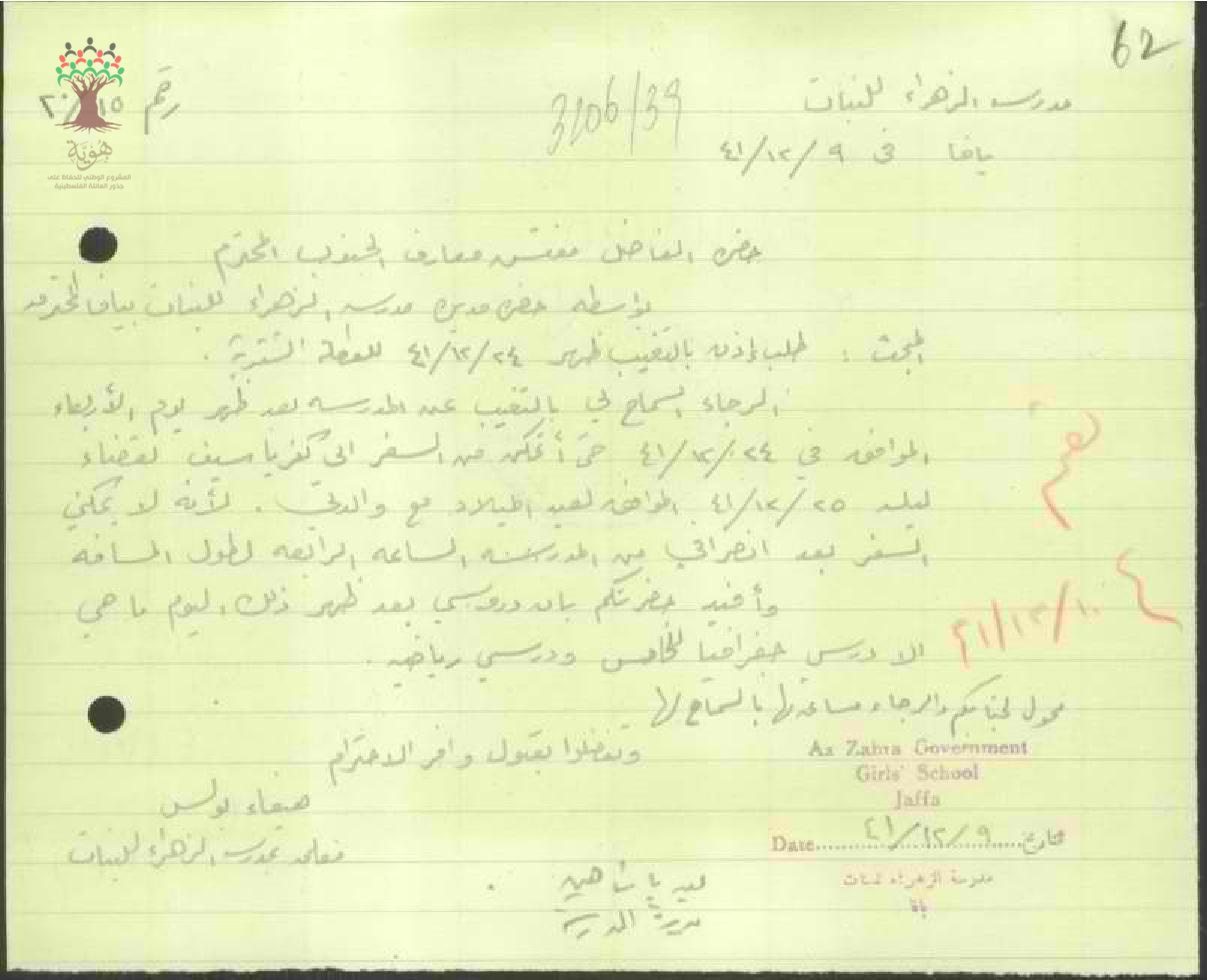 62
مدرسة الزهراء للبنات
3106/39
رقم ٢٠/١٥
يافا في ٤١/١٢/٩
هوية
المشروع الوطني للحفاظ على
جذور العائلة الفلسطينية
حضرة الفاضل مفتش معارف الجنوب المحترم
بواسطة حضرة مديرة مدرسة الزهراء للبنات بيافا المحترمة
المبحث : طلب إذن بالتغيب ظهر ٤١/١٢/٢٤ للعطلة الشتوية .
الرجاء السماح لي بالتغيب عن المدرسة بعد ظهر يوم الأربعاء
الموافق في ٤١/١٢/٢٤ حتى أتمكن من السفر الى كفرياسيف لقضاء
ليلة ٤١/١٢/٢٥ الموافق لعيد الميلاد مع والدتي . لأنه لا يمكنني
السفر بعد انصرافي من المدرسة الساعة الرابعة لطول المسافة
وأفيد حضرتكم بان دروسي بعد ظهر ذلك اليوم ما هي
الا درس جغرافيا للخامس ودرسي رياضة .
نعم
٤١/١٢/١٠
محول لجنابكم والرجاء مساعدتها بالسماح لها
وتفضلوا بقبول وافر الاحترام
Az Zahra Government
Girls' School
Jaffa
Date.......٤١/١٢/٩.......تاريخ
مدرسة الزهراء للبنات
يافا
بولس
معلمة بمدرسة الزهراء للبنات
شاهين
مديرة المدرسة